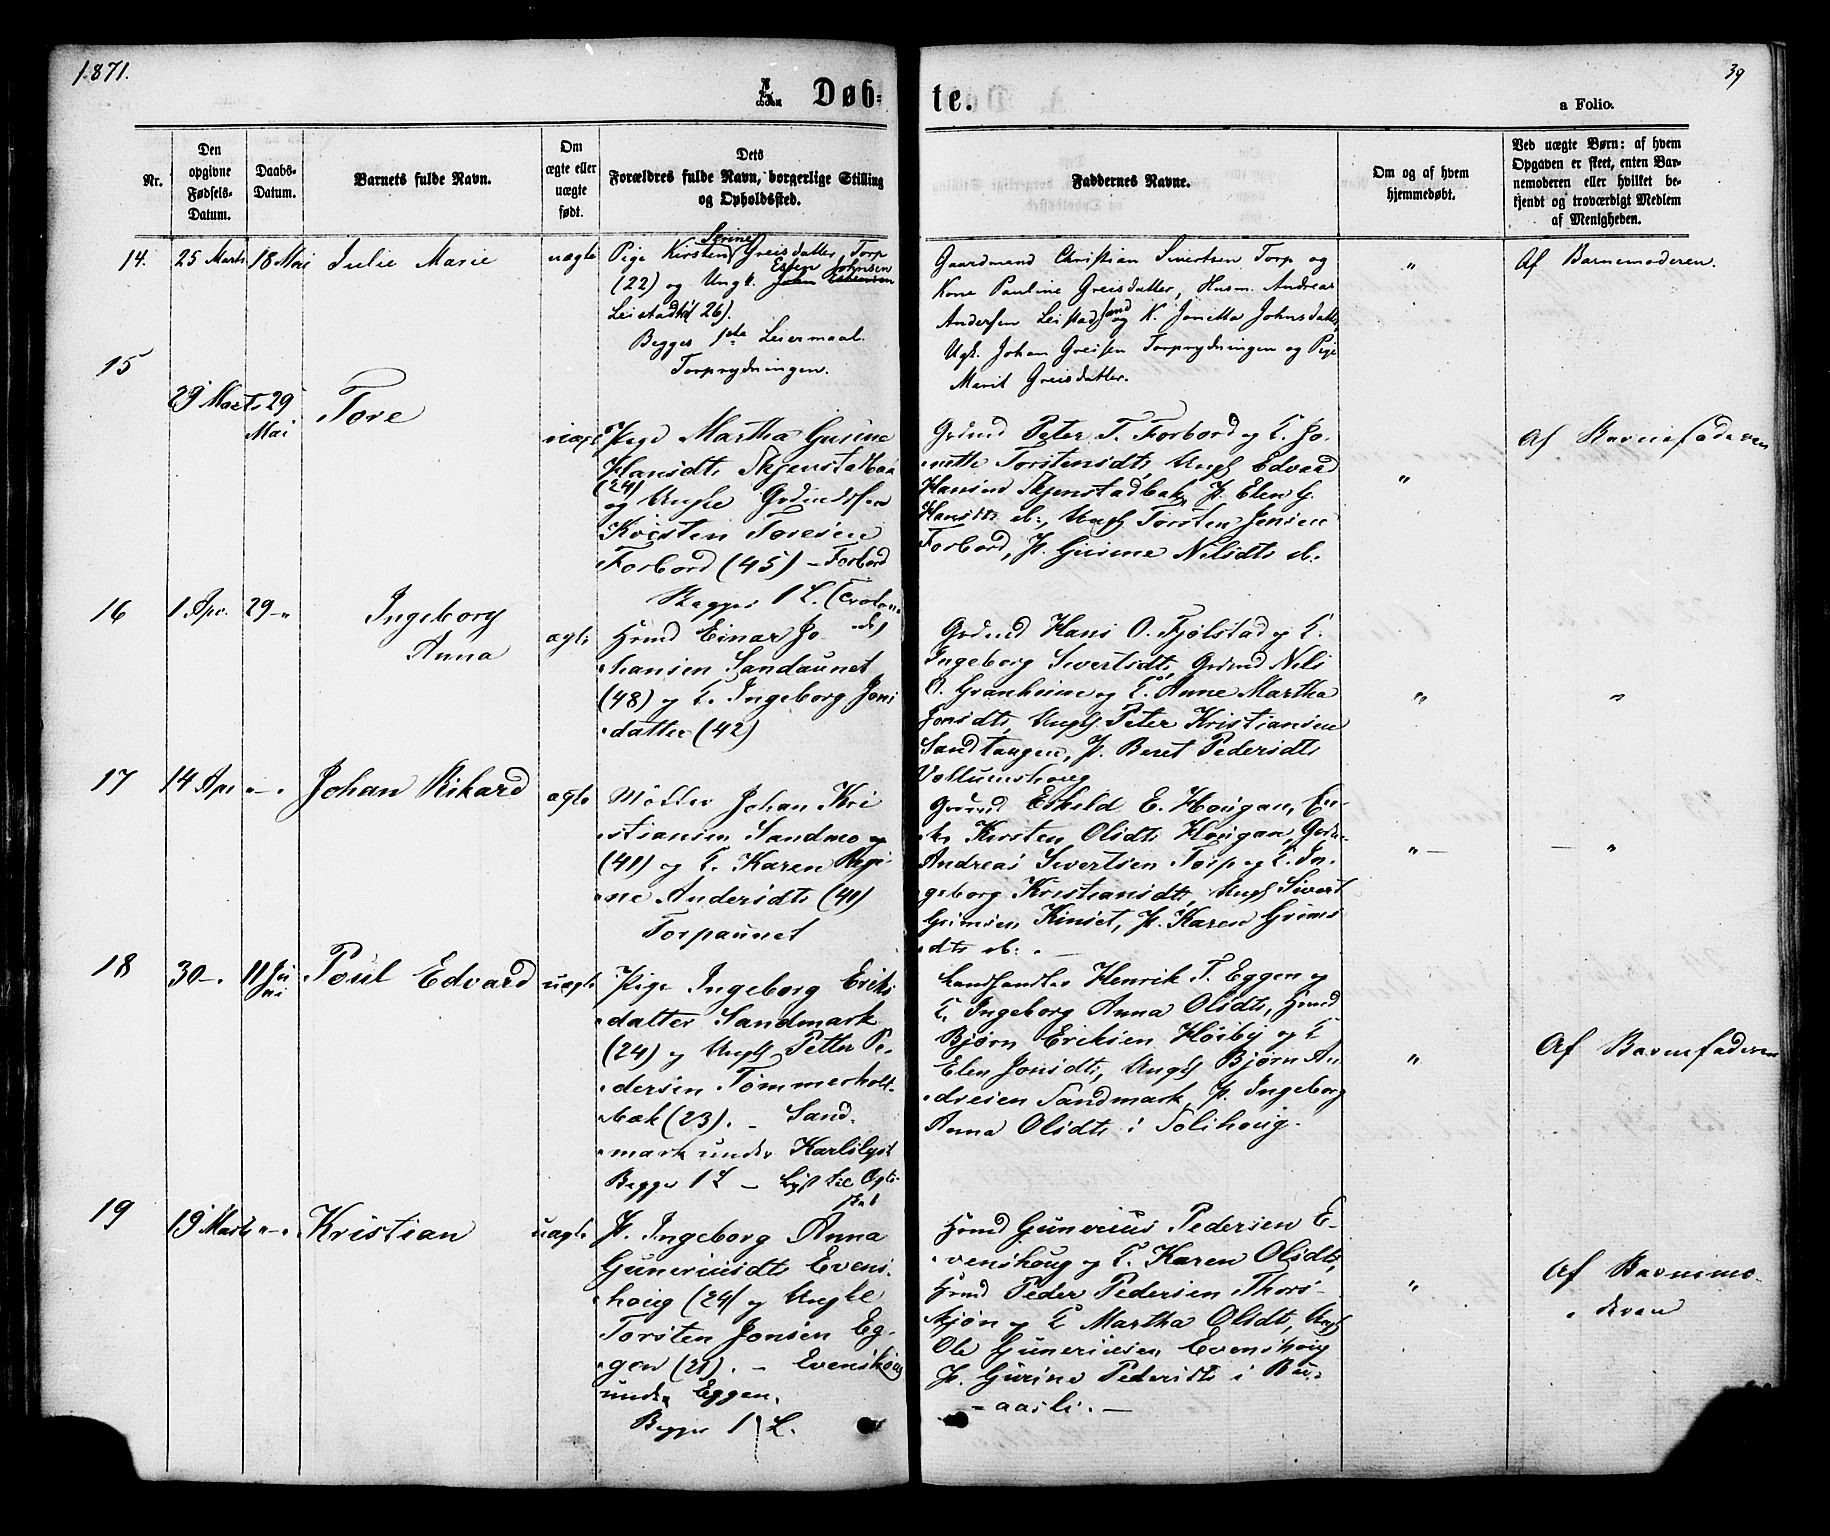 1871.
39
A. Døb-
te.
a Folio.
Nr.
Den opgivne Fødsels-Datum.
Daabs-Datum.
Barnets fulde Navn.
Om ægte eller uægte født.
Dets Forældres fulde Navn, borgerlige Stilling og Opholdssted.
Faddernes Navne.
Om og af hvem hjemmedøbt.
Ved uægte Børn: af hvem Opgaven er skeet, enten Barnemoderen eller hvilket bekjendt og troværdigt Medlem af Menigheden.
14.
25 Marts
18 Mai
Julie Marie
uægte
Serine
Pige Kirsten Greisdatter, Torp
Esten Johnsen
(22) og Ungk. John Estensen
Leistad (26).
Begges 1ste Leiermaal.
Torprydningen.
Gaardmand Christian Sivertsen Torp og
Kone Pauline Greisdatter, Husm. Andreas
Andersen Leistad og K. Jonetta Johnsdatter,
Ugk. Johan Greisen Torprydningen og Pige
Marit Greisdatter.
"
Af Barnemoderen.
15
29 Marts
29 Mai
Tore
uægte
Pige Martha Gurine
Hansdt. Skjenstadbak
(24)
og Ungke Grdmdssøn
Kristen Toresen
Forbord (45) – Forbord
Begges 1 L.
Grdmd Peter T. Forbord og K. Jo-
nette Torstensdt, Ungk Edvard
Hansen Skjenstadbak, P. Elen G.
Hansdt. ib., Ungk Torsten Jensen
Forbord, P. Gurine Nilsdt. ib.
"
Af Barnefaderen
16
1. Apr.
29 – "
Ingeborg
Anna
ægte
Hsmd Einar Jo-
hansen Sandaunet
(48) og K. Ingeborg Jons
datter (42)
Grdmd Hans O. Fjølstad og K.
Ingeborg Sivertsdt, Grdmd Nils
O. Granheim og K. Anne Martha
Jonsdt, Ungk Peter Kristiansen
Sandtangen, P. Beret Pedersdt
Vollumshoug
"
"
17
14 Apr
" – "
Johan Rikard
ægte
Møller Johan Kri
stiansen Sandmo og
(41) og K. Karen Regi-
ne Andersdt (40)
Torpaunet
Grdmd Eskild E. Hougan, En-
ke Kirsten Olsdt Hougan, Grdm
Andreas Sivertsen Torp og K. In-
geborg Kristiansdt, Ungk Sivert
Grimsen Kinset, P. Karen Grims
dt. ib. –
" –
– "
18
30 – "
11 Juni
Poul Edvard
uægte
Pige Ingeborg Eriks
datter Sandmark
(24) og Ungk Petter Pe-
dersen Tømmerholt-
bak (23). – Sand-
mark under Karlslyst
Begges 1 L – Lyst til Ægte
skab
Landhandler Henrik T. Eggen og
K. Ingeborg Anna Olsdt, Hsmd
Bjørn Eriksen Hosby og K
Elen Jonsdt, Ungk Bjørn An
dresen Sandmark, P. Ingeborg
Anna Olsdt i Solshoug.
"
Af Barnefaderen
19
19 Marts
" – "
Kristian
uægte
P. Ingeborg Anna
Guneriusdt Evens
houg (24) og Ungke
Torsten Jonsen Eg-
gen (21). – Evenshoug
under Eggen.
Begges 1 L.
Hsmd Gunerius Pedersen E-
venshoug og K. Karen Olsdt,
Hsmd Peder Pedersen Thors-
kjøn og K Martha Olsdt, Ungk
Ole Guneriusen Evenshoug
P. Gurine Pedersdt i Bu-
– aasli. –
"
Af Barnemo-
deren